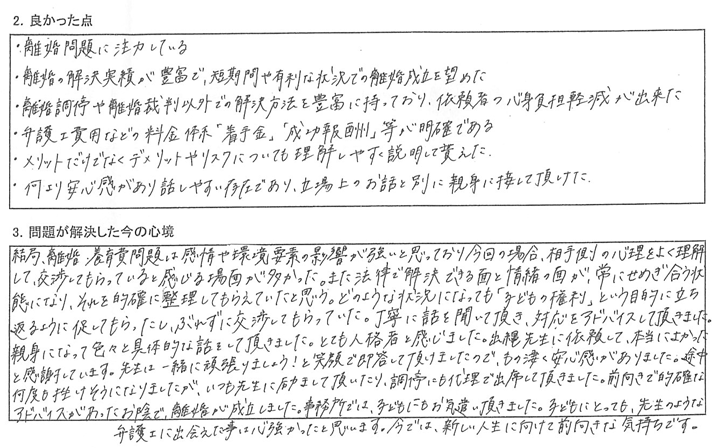 2. 良かった点
・離婚問題に注力している
・離婚の解決実績が豊富で、短期間や有利な状況での離婚成立を望めた
・離婚調停や離婚裁判以外での解決方法を豊富に持っており、依頼者の心身負担軽減が出来た
・弁護士費用などの料金体系「着手金」「成功報酬」等が明確である
・メリットだけでなくデメリットやリスクについても理解しやすく説明して貰えた.
・何より安心感があり話しやすい存在であり、立場上のお話と別に親身に接して頂けた.
3. 問題が解決した今の心境
結局、離婚 養育費問題は感情や環境要素の影響が強いと思っており今回の場合、相手側の心理をよく理解
して、交渉してもらっていると感じる場面が多かった。また法律で解決できる面と情緒の面が、常にせめぎ合う状
態になり、それを的確に整理してもらえていたと思う。どのような状況になっても「子どもの権利」という目的に立ち
返るように促してもらったし、ぶれずに交渉してもらっていた。丁寧に話を聞いて頂き、対応をアドバイスして頂きました。
親身になって色々と具体的な話をして頂きました。とても人格者と感じました。出縄先生に依頼して、本当によかった
と感謝しています。先生は一緒に頑張りましょう!と笑顔で即答して頂けましたので、もの凄く安心感がありました。途中
何度も挫けそうになりましたが、いつも先生に励まして頂いたり、調停にも代理で出席して頂きました。前向きで的確な
アドバイスがあったお陰で、離婚が成立しました。事務所では、子どもにもお気遣い頂きました。子どもにとっても、先生のような
弁護士に出会えた事は心強かったと思います。今では、新しい人生に向けて前向きな気持ちです。